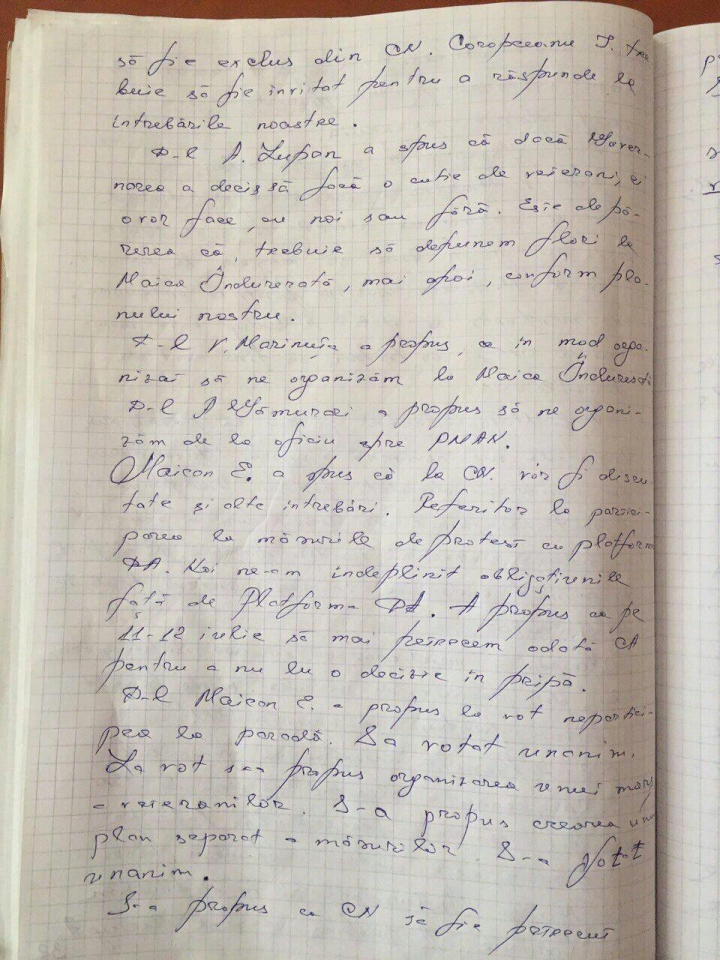 să fie exclus din CN. Coropceanu I. tre
buie să fie invitat pentru a răspunde la
întrebările noastre.
D-l A. Lupan a spus că dacă Guver-
narea a decis să facă o cutie de veterani, ei
o vor face, cu noi sau fără. Este de pă-
rerea că, trebuie să depunem flori la
Maica Îndurerată, mai apoi, conform pla-
nului nostru.
D-l V. Marinuța a propus, ca în mod orga-
nizat să ne organizăm la Maica
D-l a propus să ne organi-
zăm de la oficiu spre PMAN.
Maican E. a spus că la CN. vor fi discu
tate și alte întrebări. Referitor la partici-
parea la măsurile de protest cu platforma
DA. Noi ne-am îndeplinit obligațiunile
față de Platforma DA. A propus ca pe
11-12 iulie să mai petrecem odată CA
pentru a nu lu o decizie în pripă.
D-l Maican E. a propus la vot neportici-
parea la paradă. S-a votat unanim.
La vot s-a propus organizarea unui marș
a veteranilor. S-a propus crearea unui
plan separat a măsurilor. S-a votat
unanim.
S-a propus ca CN să fie petrecut